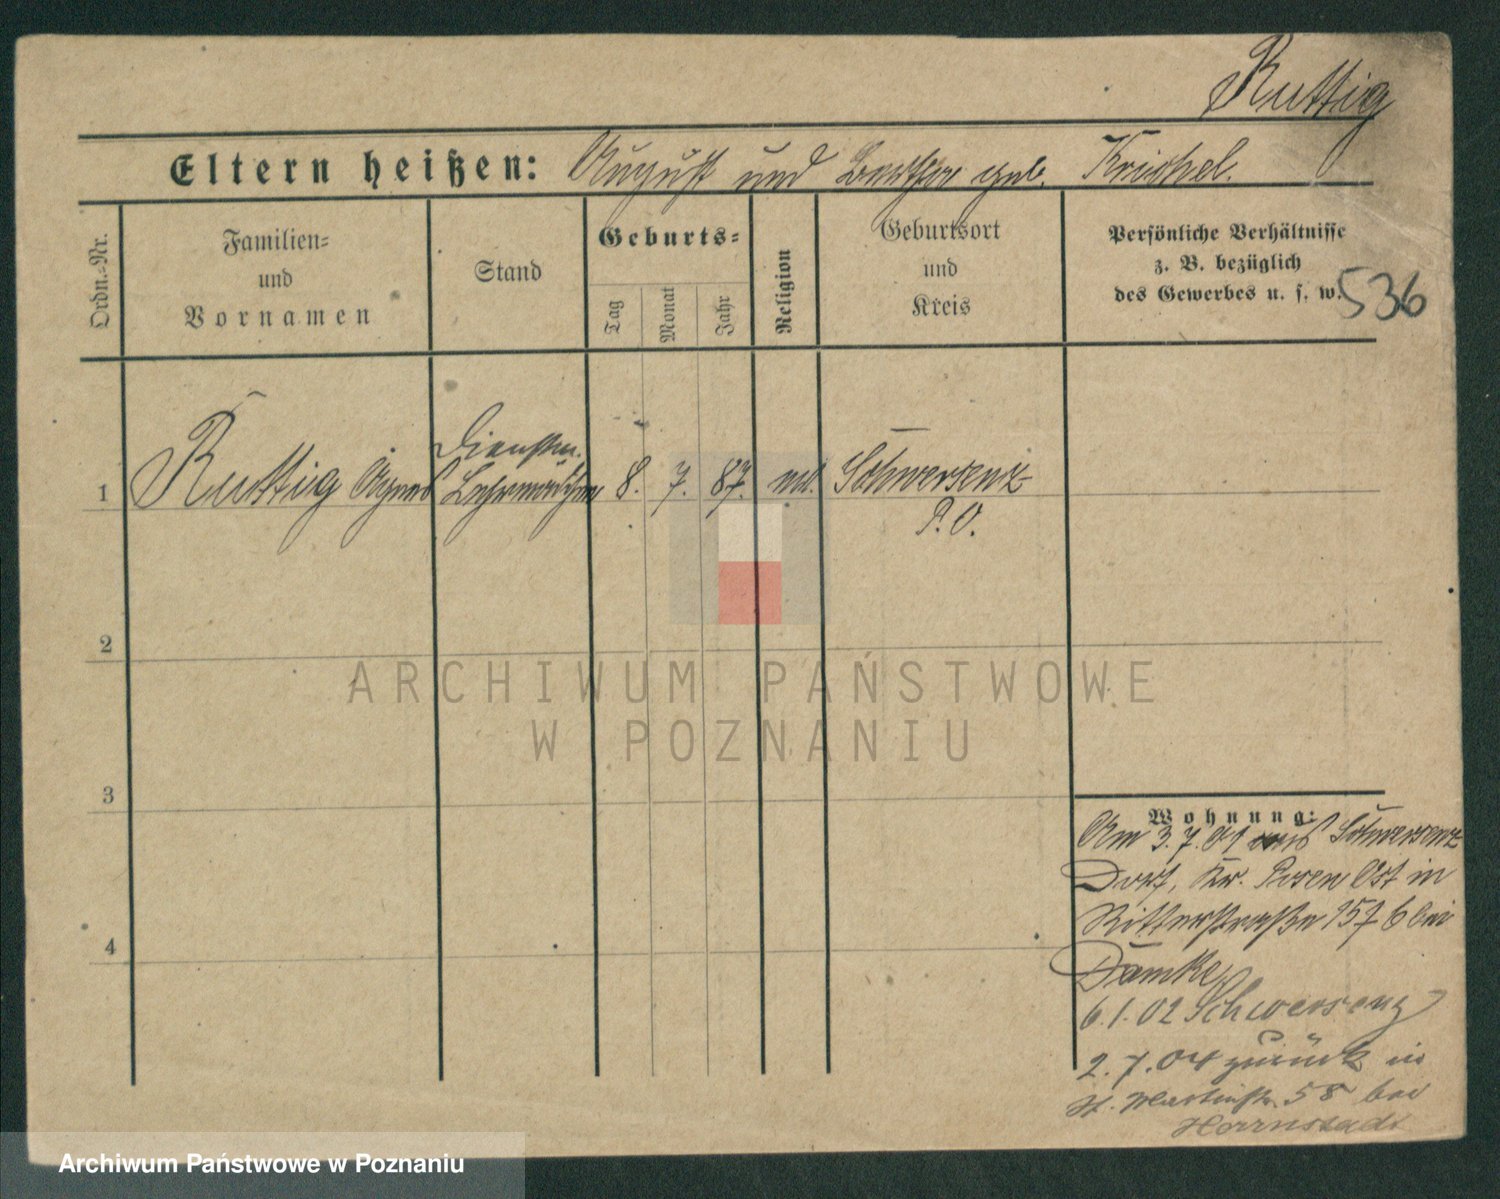 Ruttig
Eltern heißen: August und Bertha geb. Krischel.
Ordn.-Nr.
Familien-
und
Vornamen
Stand
Geburts-
Tag
Monat
Jahr
Religion
Geburtsort
und
Kreis
Persönliche Verhältnisse
z. B. bezüglich
des Gewerbes u. s. w.
536
Dienstm.
1 Ruttig Agnes Lehrmädchen 8. 7. 87. Schwersenz
P. O.
2
3
4
Wohnung:
Am 3.7.01 aus Schwersenz
Dorf, Kr. Posen Ost in
Ritterstraße 157 b bei
Damke
6.1.02 Schwersenz
2.7.04 zurück in
St. Martinstr. 58 bei
Herrnstadt
ARCHIWUM PAŃSTWOWE
W POZNANIU
Archiwum Państwowe w Poznaniu